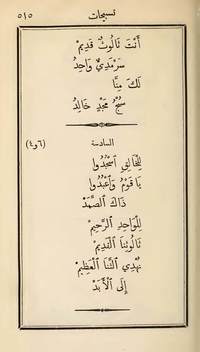 تسبيحات ٥١٥
أَنْتَ ثَالُوثٌ قَدِيمْ
سَرْمَدِيٌّ وَاحِدُ
لَكَ مِنَّا
سُبْحُ مَجْدٍ خَالِدُ
السادسة (٦و٤)
لِلْخَالِقِ ٱسْجُدُوا
يَا قَوْمُ وَٱعْبُدُوا
ذَاكَ ٱلصَّمَدْ
لِلْوَاحِدِ ٱلرَّحِيمْ
ثَالُوثِنَا ٱلْقَدِيمْ
نُهْدِي ٱلثَّنَا ٱلْعَظِيمْ
إِلَى ٱلْأَبَدْ